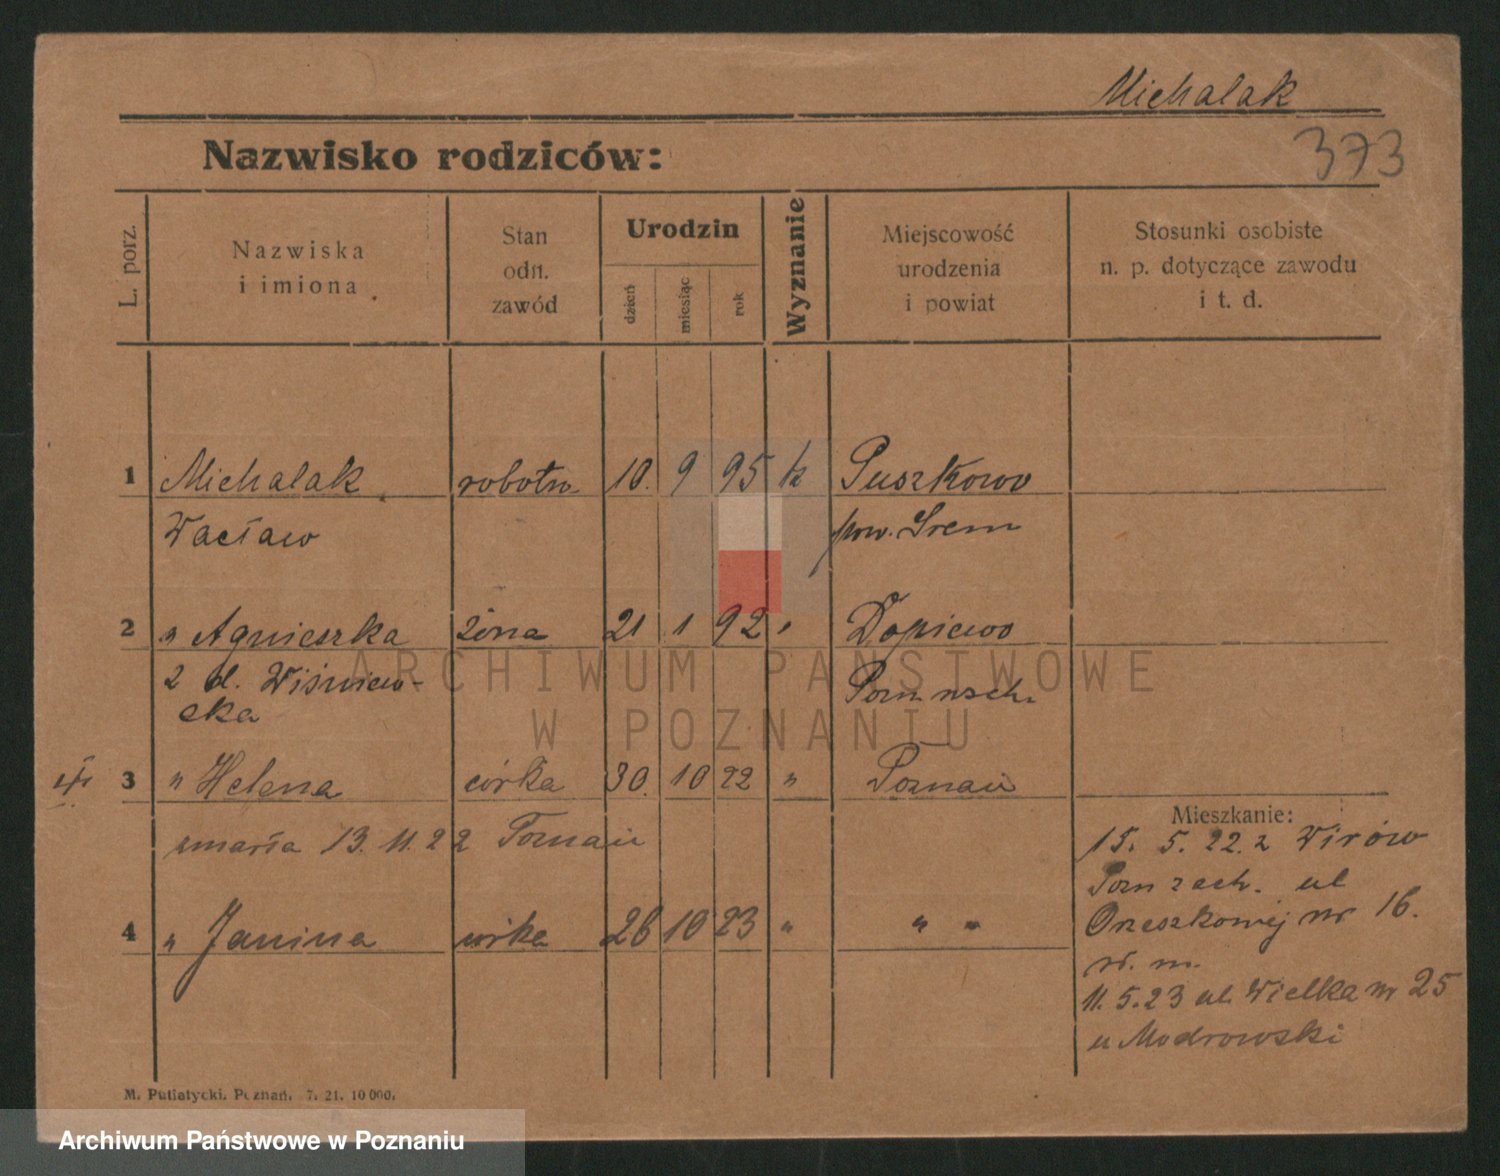 Michalak
373
Nazwisko rodziców:
L. porz.
Nazwiska
i imiona
Stan
odn.
zawód
Urodzin
dzień
miesiąc
rok
Wyznanie
Miejscowość
urodzenia
i powiat
Stosunki osobiste
n. p. dotyczące zawodu
i t. d.
1 Michalak robotn. 10. 9 95 k Puszkowo
Wacław pow. Śrem
2 " Agnieszka żona 21 1 92 " Dopiewo
z d. Wiśniew-
ska
Pozn. zach.
3 " Helena córka 30. 10 22 " Poznań
zmarła 13. 11. 22 Poznań
4 " Janina córka 26 10 23 " " "
Mieszkanie:
15. 5. 22. z Wirów
Pozn zach. ul
Orzeszkowej nr 16.
r. m.
11. 5. 23 ul. Wielka nr 25
u Modrowski
M. Putiatycki. Poznań. 7. 21. 10 000.
ARCHIWUM PAŃSTWOWE
W POZNANIU
Archiwum Państwowe w Poznaniu